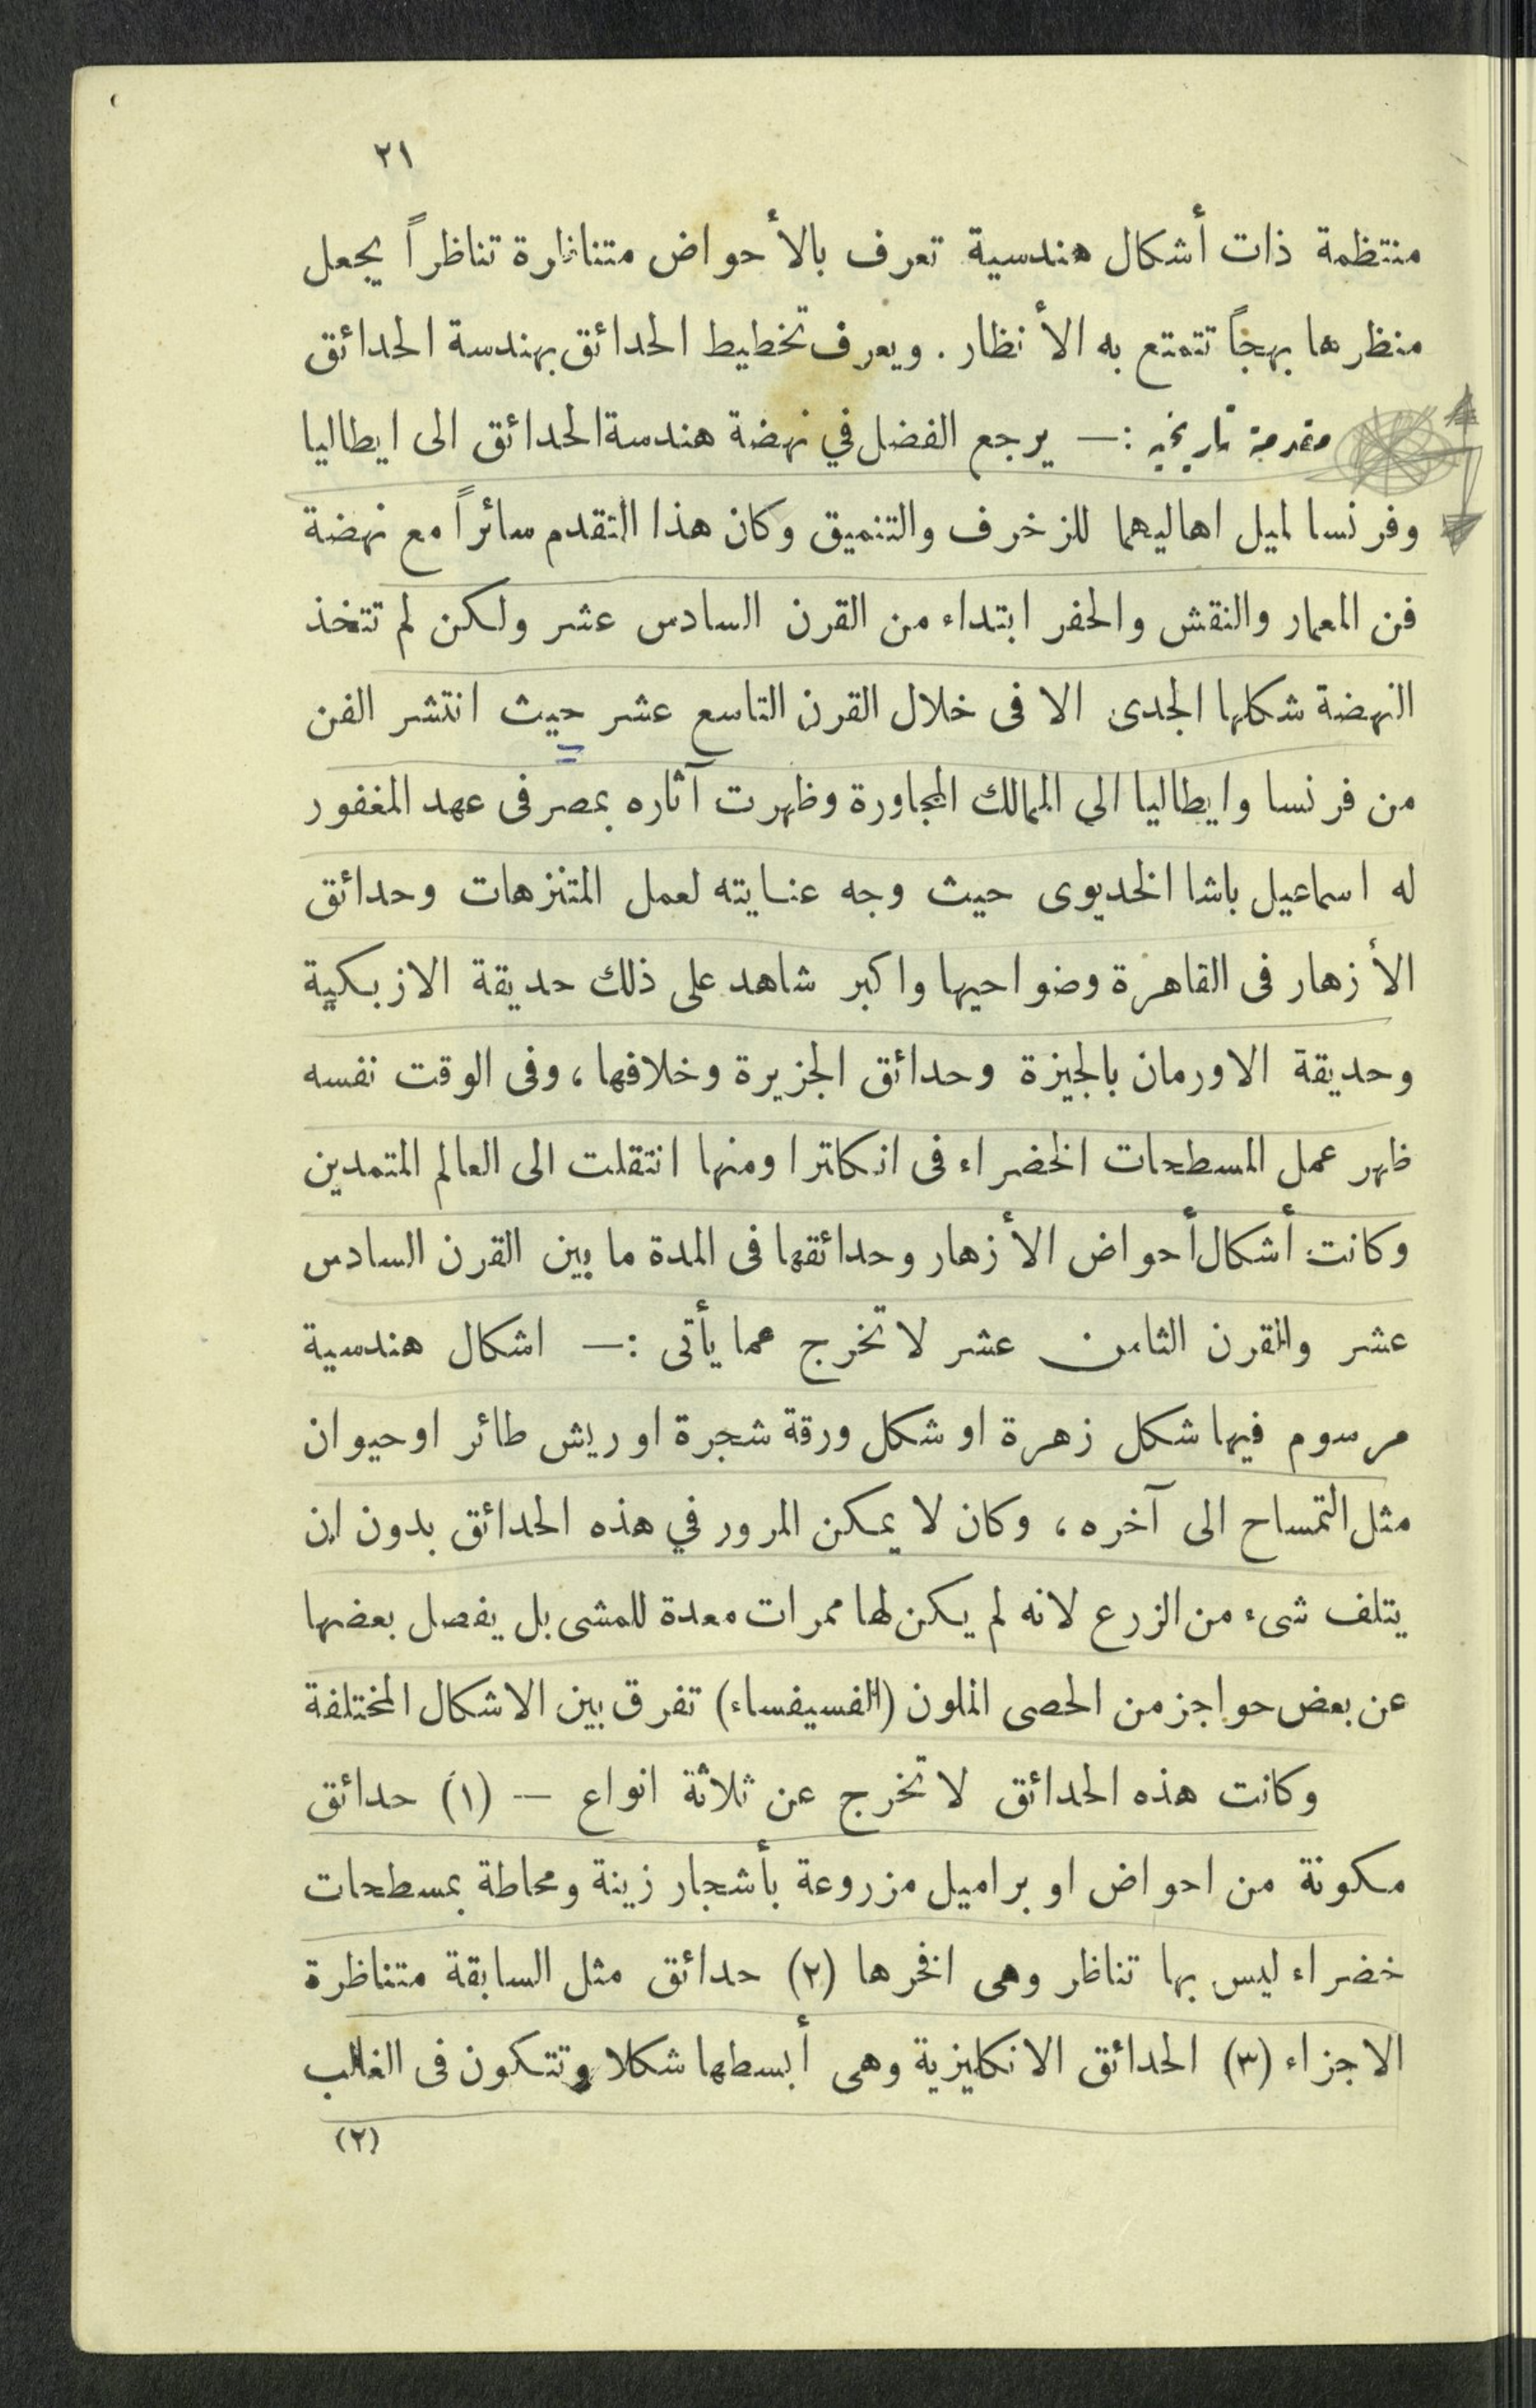 ٢١
منتظمة ذات أشكال هندسية تعرف بالأحواض متناظرة تناظراً يجعل
منظرها بهجاً تتمتع به الأنظار. ويعرف تخطيط الحدائق بهندسة الحدائق
مقدمة تاريخية :— يرجع الفضل في نهضة هندسة الحدائق الى ايطاليا
وفرنسا لميل اهاليهما للزخرف والتنميق وكان هذا التقدم سائراً مع نهضة
فن المعمار والنقش والحفر ابتداء من القرن السادس عشر ولكن لم تتخذ
النهضة شكلها الجدى الا فى خلال القرن التاسع عشر حيث انتشر الفن
من فرنسا وايطاليا الي الممالك المجاورة وظهرت آثاره بمصر فى عهد المغفور
له اسماعيل باشا الخديوى حيث وجه عنايته لعمل المتنزهات وحدائق
الأزهار فى القاهرة وضواحيها واكبر شاهد على ذلك حديقة الازبكية
وحديقة الاورمان بالجيزة وحدائق الجزيرة وخلافها، وفى الوقت نفسه
ظهر عمل المسطحات الخضراء فى انكلترا ومنها انتقلت الى العالم المتمدين
وكانت أشكال أحواض الأزهار وحدائقها فى المدة ما بين القرن السادس
عشر والقرن الثامن عشر لا تخرج عما يأتى :— اشكال هندسية
مرسوم فيها شكل زهرة او شكل ورقة شجرة او ريش طائر او حيوان
مثل التمساح الى آخره، وكان لا يمكن المرور في هذه الحدائق بدون ان
يتلف شىء من الزرع لانه لم يكن لها ممرات معدة للمشى بل يفصل بعضها
عن بعض حواجز من الحصى الملون (الفسيفساء) تفرق بين الاشكال المختلفة
وكانت هذه الحدائق لا تخرج عن ثلاثة انواع — (١) حدائق
مكونة من احواض او براميل مزروعة بأشجار زينة ومحاطة بمسطحات
خضراء ليس بها تناظر وهى افخرها (٢) حدائق مثل السابقة متناظرة
الاجزاء (٣) الحدائق الانكليزية وهى أبسطها شكلا وتتكون فى الغالب
(٢)